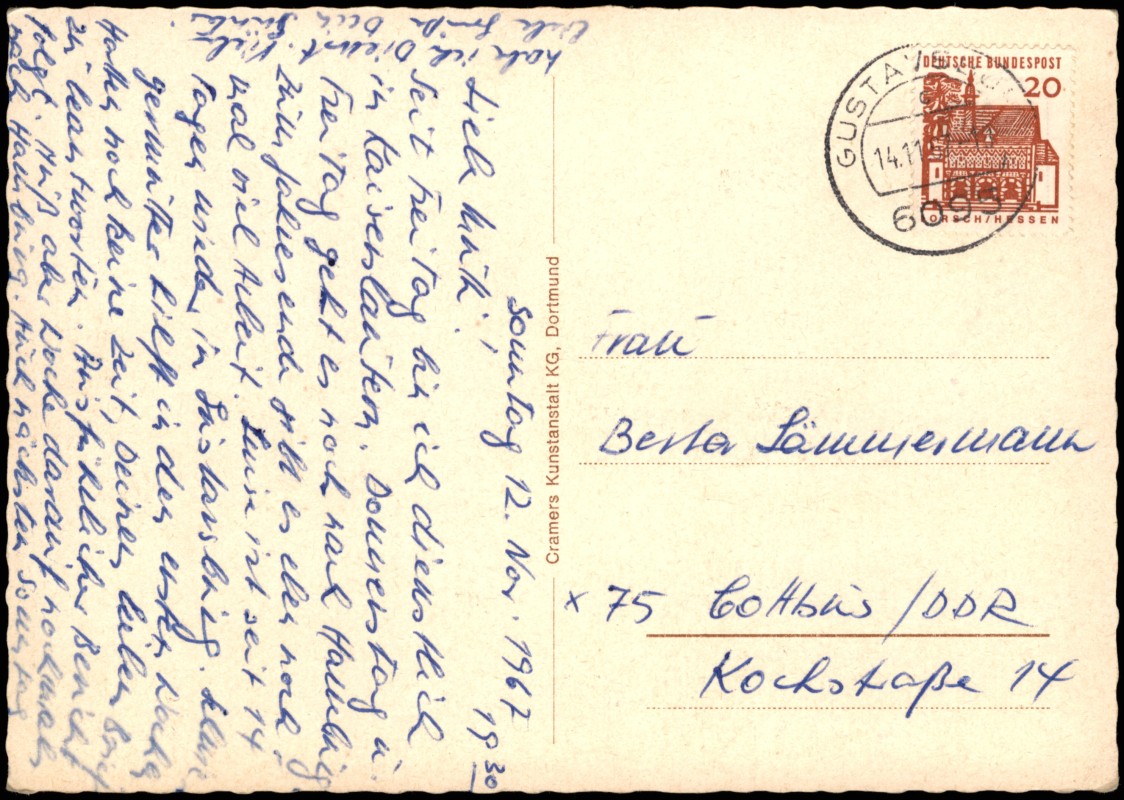 Sonntag 12. Nov. 1967
19³⁰
Liebe Mutti,
Seit Freitag bin ich dienstlich
in Kaiserslautern. Donnerstag u.
Freitag geht es noch nach Hamburg
zum Jahresende gibt es eben noch
mal viel Arbeit. ist seit 14
Tagen wieder in
in der ersten Woche
Hatte noch keine Zeit, Deinen lieben Brief
zu beantworten. Ausführlicher Bericht
folgt. Muß aber Woche darauf nochmals
nach Hamburg. Auch nächsten Sonntag
hab ich Dienst.
Viele Grüße Dein
Cramers Kunstanstalt KG, Dortmund
DEUTSCHE BUNDESPOST
20
LORSCH/HESSEN
GUSTAVSBURG
14.11.
6095
Frau
Berta Lämmermann
x 75 Cottbus/DDR
Kochstraße 14